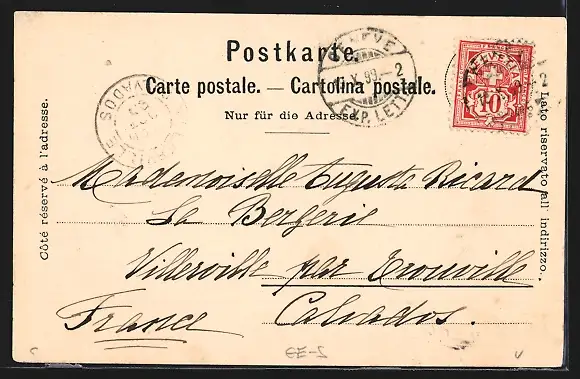 Postkarte.
Carte postale. — Cartolina postale.
Nur für die Adresse.
Côté réservé à l'adresse.
Lato riservato all' indirizzo.
GENÈVE
EXP. LETT
HELVETIA
10
Mademoiselle Augusta Ricard
La Bergerie
Villerville par Trouville
France Calvados.